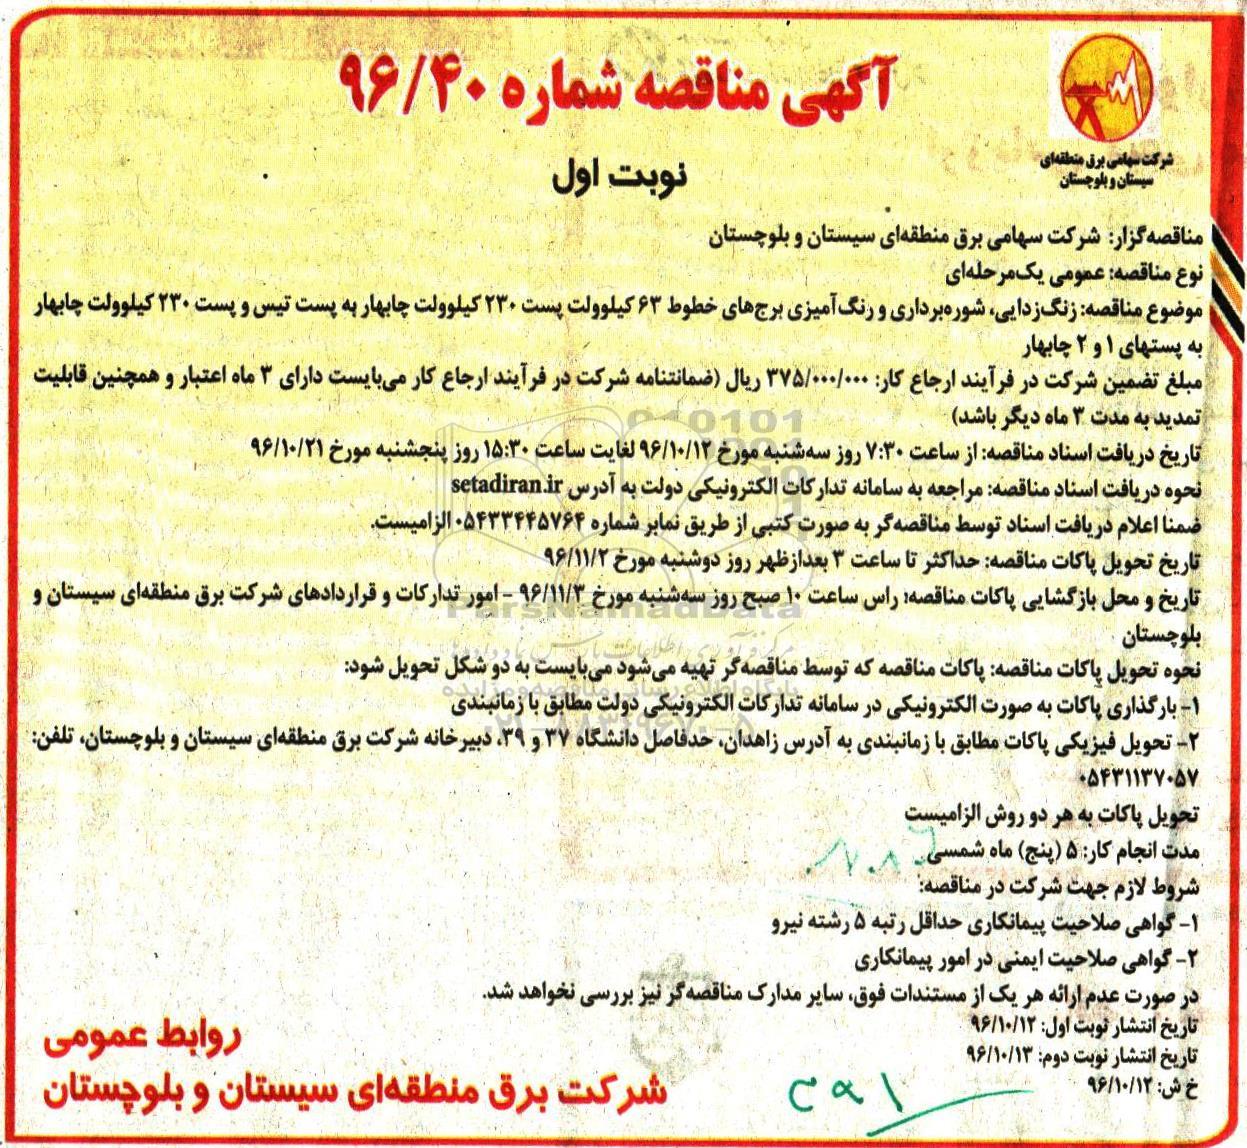 آگهی مناقصه شماره ۹۶/۴۰
شرکت سهامی برق منطقه‌ای
سیستان و بلوچستان
نوبت اول
مناقصه‌گزار: شرکت سهامی برق منطقه‌ای سیستان و بلوچستان
نوع مناقصه: عمومی یک‌مرحله‌ای
موضوع مناقصه: زنگ‌زدایی، شوره‌برداری و رنگ‌آمیزی برج‌های خطوط ۶۳ کیلوولت پست ۲۳۰ کیلوولت چابهار به پست تیس و پست ۲۳۰ کیلوولت چابهار
به پستهای ۱ و ۲ چابهار
مبلغ تضمین شرکت در فرآیند ارجاع کار: ۳۷۵/۰۰۰/۰۰۰ ریال (ضمانتنامه شرکت در فرآیند ارجاع کار می‌بایست دارای ۳ ماه اعتبار و همچنین قابلیت
تمدید به مدت ۳ ماه دیگر باشد)
تاریخ دریافت اسناد مناقصه: از ساعت ۷:۳۰ روز سه‌شنبه مورخ ۹۶/۱۰/۱۲ لغایت ساعت ۱۵:۳۰ روز پنجشنبه مورخ ۹۶/۱۰/۲۱
نحوه دریافت اسناد مناقصه: مراجعه به سامانه تدارکات الکترونیکی دولت به آدرس setadiran.ir
ضمنا اعلام دریافت اسناد توسط مناقصه‌گر به صورت کتبی از طریق نمابر شماره ۰۵۴۳۳۴۴۵۷۶۴ الزامیست.
تاریخ تحویل پاکات مناقصه: حداکثر تا ساعت ۳ بعدازظهر روز دوشنبه مورخ ۹۶/۱۱/۲
تاریخ و محل بازگشایی پاکات مناقصه: راس ساعت ۱۰ صبح روز سه‌شنبه مورخ ۹۶/۱۱/۳ - امور تدارکات و قراردادهای شرکت برق منطقه‌ای سیستان و
بلوچستان
ParsNamadData
نحوه تحویل پاکات مناقصه: پاکات مناقصه که توسط مناقصه‌گر تهیه می‌شود می‌بایست به دو شکل تحویل شود:
۱- بارگذاری پاکات به صورت الکترونیکی در سامانه تدارکات الکترونیکی دولت مطابق با زمانبندی
۲- تحویل فیزیکی پاکات مطابق با زمانبندی به آدرس زاهدان، حدفاصل دانشگاه ۳۷ و ۳۹، دبیرخانه شرکت برق منطقه‌ای سیستان و بلوچستان، تلفن:
۰۵۴۳۱۱۳۷۰۵۷
تحویل پاکات به هر دو روش الزامیست
مدت انجام کار: ۵ (پنج) ماه شمسی
شروط لازم جهت شرکت در مناقصه:
۱- گواهی صلاحیت پیمانکاری حداقل رتبه ۵ رشته نیرو
۲- گواهی صلاحیت ایمنی در امور پیمانکاری
در صورت عدم ارائه هر یک از مستندات فوق، سایر مدارک مناقصه‌گر نیز بررسی نخواهد شد.
تاریخ انتشار نوبت اول: ۹۶/۱۰/۱۲
تاریخ انتشار نوبت دوم: ۹۶/۱۰/۱۳
خ ش: ۹۶/۱۰/۱۲
روابط عمومی
شرکت برق منطقه‌ای سیستان و بلوچستان